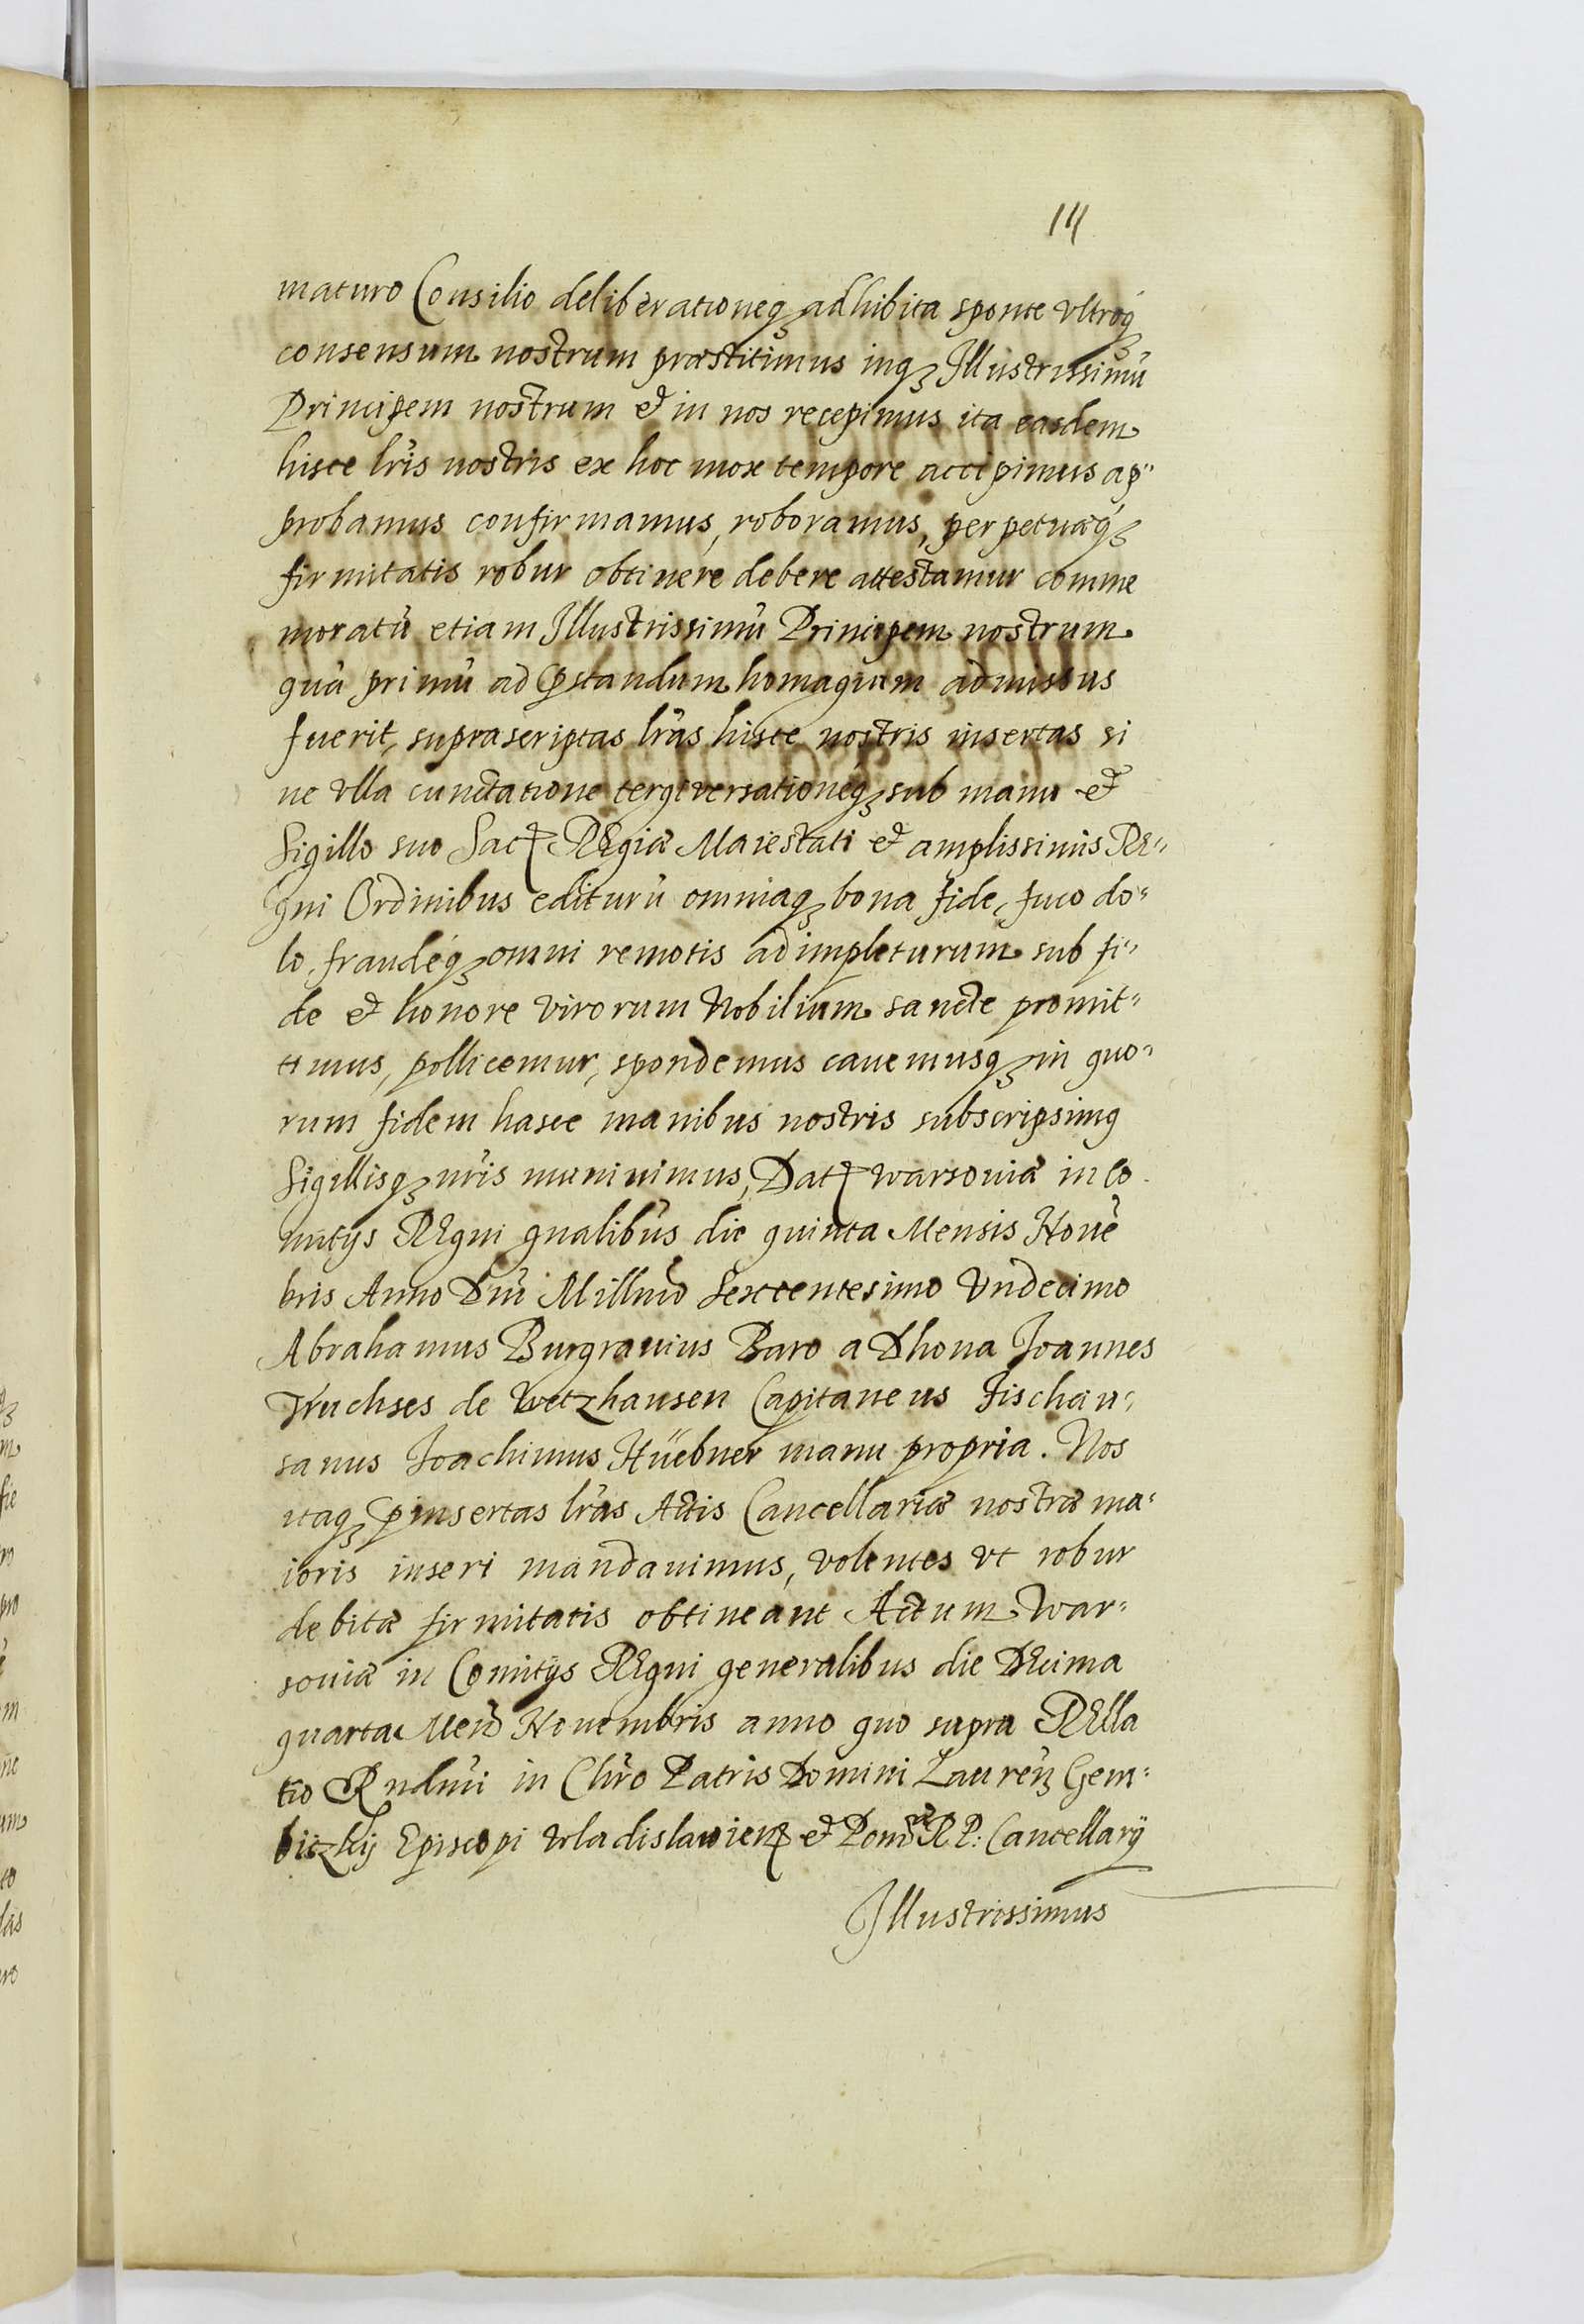 14
maturo Consilio deliberationeq₃ adhibita sponte vltroq₃
consensum nostrum præstitimus inq₃ Illustrissimũ
Principem nostrum et in nos recepimus ita easdem
hisce lr̃is nostris ex hoc mox tempore accipimus ap"
probamus confirmamus, roboramus, perpetuæq₃
firmitatis robur obtinere debere attestamur comme
moratũ etiam Illustrissimũ Principem nostrum
quã primũ ad p̃standum homagium admissus
fuerit, suprascriptas lr̃as hisce nostris insertas si
ne vlla cunctatione tergiversationéq₃ sub manu et
Sigillo suo Sacꝶ REgiæ Maiestati et amplissimis RE"
gni Ordinibus editurũ omniaq₃ bona fide, fuco do"
lo, fraudéq₃ omni remotis adimpleturum sub fi"
de et honore virorum Nobilium sancte promit"
timus, pollicemur, spondemus cauemusq₃ in quo"
rum fidem hasce manibus nostris subscripsimꝯ
Sigillisq₃ nr̃is muniuimus, Datꝶ warsouiæ in Co
mitijs REgni gnalibus die quinta Mensis Nouẽ
bris Anno Dñi Millmo Sexcentesimo Vndecimo
Abrahamus Burgrauius Baro a Dhona Joannes
Truchses de Wetzhausen Capitaneus Fischau"
sanus Joachimus Hüebner manu propria. Nos
itaq₃ p̃insertas lr̃as Actis Cancellariæ nostræ ma"
ioris inseri mandauimus, volentes vt robur
debitæ firmitatis obtineant Actum War"
souiæ in Comitijs REgni generalibus die DEcima
quarta Mens̃ Nouembris anno quo supra RElla
tio Rndmi in Chr̃o Patris Domini Lauren₃ Gem"
biczkij Episcopi Vladislauienꝶ et Pom̃æ R P: Cancellarij
Illustrissimus